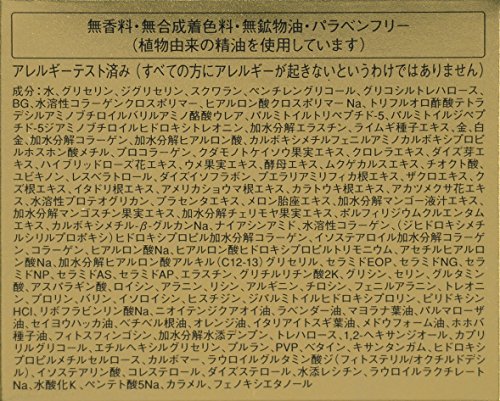 無香料・無合成着色料・無鉱物油・パラベンフリー
(植物由来の精油を使用しています)
アレルギーテスト済み(すべての方にアレルギーが起きないというわけではありません)
成分:水、グリセリン、ジグリセリン、スクワラン、ペンチレングリコール、グリコシルトレハロース、
BG、水溶性コラーゲンクロスポリマー、ヒアルロン酸クロスポリマーNa、トリフルオロ酢酸テトラ
デシルアミノブチロイルバリルアミノ酪酸ウレア、パルミトイルトリペプチド-5、パルミトイルジペ
プチド-5ジアミノブチロイルヒドロキシトレオニン、加水分解エラスチン、ライムギ種子エキス、金、白
金、加水分解コラーゲン、加水分解ヒアルロン酸、カルボキシメチルフェニルアミノカルボキシプロピ
ルホスホン酸メチル、プロコラーゲン、クダモノトケイソウ果実エキス、クロレラエキス、ダイズ芽エ
キス、ハイブリッドローズ花エキス、ウメ果実エキス、酵母エキス、ムクゲカルスエキス、チオクト酸、
ユビキノン、レスベラトロール、ダイズイソフラボン、プエラリアミリフィカ根エキス、ザクロエキス、ク
ズ根エキス、イタドリ根エキス、アメリカショウマ根エキス、カラトウキ根エキス、アカツメクサ花エキ
ス、水溶性プロテオグリカン、プラセンタエキス、メロン胎座エキス、加水分解マンゴー液汁エキス、
加水分解マンゴスチン果実エキス、加水分解チェリモヤ果実エキス、ポルフィリジウムクルエンタム
エキス、カルボキシメチル-β-グルカンNa、ナイアシンアミド、水容性コラーゲン、(ジヒドロキシメ
チルシリルプロポキシ)ヒドロキシプロピル加水分解コラーゲン、イソステアロイル加水分解コラーゲ
ン、コラーゲン、ヒアルロン酸Na、ヒアルロン酸ヒドロキシプロピルトリモニウム、アセチルヒアルロ
ン酸Na、加水分解ヒアルロン酸アルキル(C12-13)グリセリル、セラミドEOP、セラミドNG、セラ
ミドNP、セラミドAS、セラミドAP、エラスチン、グリチルリチン酸2K、グリシン、セリン、グルタミン
酸、アスパラギン酸、ロイシン、アラニン、リシン、アルギニン、チロシン、フェニルアラニン、トレオニ
ン、プロリン、バリン、イソロイシン、ヒスチジン、ジパルミトイルヒドロキシプロリン、ピリドキシン
HCl、リボフラビンリン酸Na、ニオイテンジクアオイ油、ラベンダー油、マヨラナ葉油、パルマローザ
油、セイヨウハッカ油、ベチベル根油、オレンジ油、イタリアイトスギ葉油、メドウフォーム油、ホホバ
種子油、フィトスフィンゴシン、加水分解水添デンプン、トレハロース、1,2-ヘキサンジオール、カプリ
リルグリコール、エチルヘキシルグリセリン、プルラン、PVP、ベタイン、キサンタンガム、ヒドロキシ
プロピルメチルセルロース、カルボマー、ラウロイルグルタミン酸ジ(フィトステリル/オクチルドデシ
ル)、イソステアリン酸、コレステロール、ダイズステロール、水添レシチン、ラウロイルラクチレート
Na、水酸化K、ペンテト酸5Na、カラメル、フェノキシエタノール